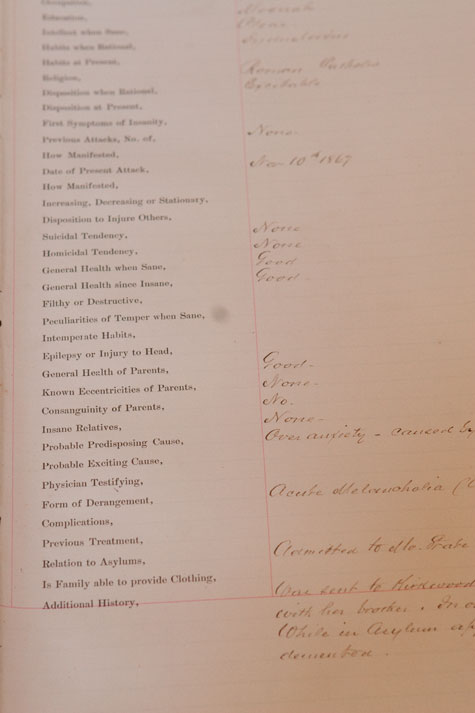 Occupation,
Education,
Intellect when Sane,
Habits when Rational,
Habits at Present, Industrious
Religion, Roman Catholic
Disposition when Rational, Excitable
Disposition at Present,
First Symptoms of Insanity,
Previous Attacks, No. of, None.
How Manifested,
Date of Present Attack, Nov 10th 1867
How Manifested,
Increasing, Decreasing or Stationary,
Disposition to Injure Others,
Suicidal Tendency, None
Homicidal Tendency, None
General Health when Sane, Good
General Health since Insane, Good.
Filthy or Destructive,
Peculiarities of Temper when Sane,
Intemperate Habits,
Epilepsy or Injury to Head,
General Health of Parents, Good-
Known Eccentricities of Parents, None-
Consanguinity of Parents, No.
Insane Relatives, None-
Probable Predisposing Cause, Over anxiety - caused
Probable Exciting Cause,
Physician Testifying,
Form of Derangement, Acute Melancholia
Complications,
Previous Treatment,
Relation to Asylums, Admitted to Mo. State
Is Family able to provide Clothing,
Additional History, Was sent to Kirkwood
with her brother. In
While in Asylum
demented.